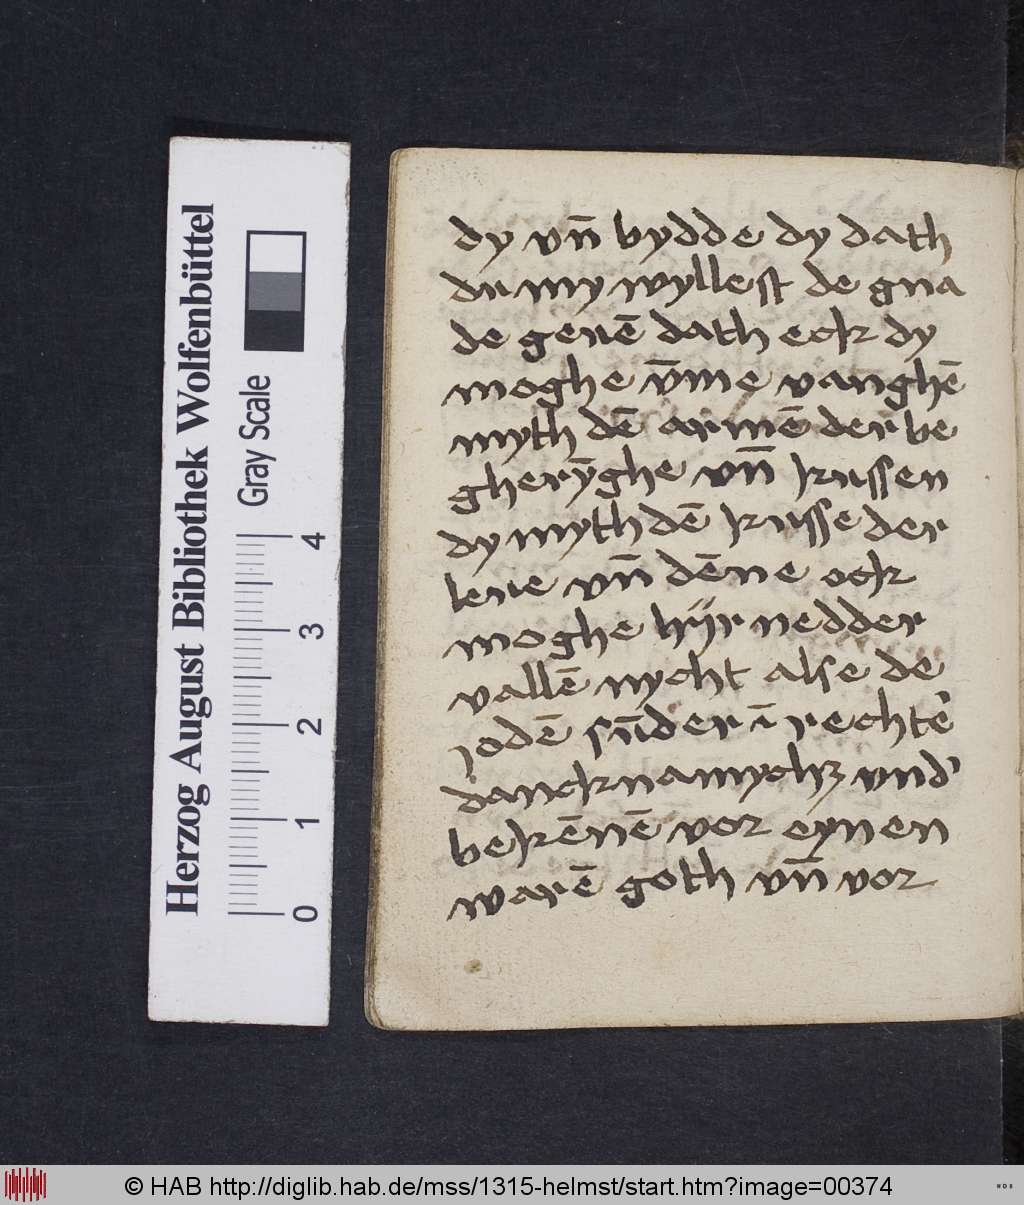 dy vn̄ bydde dy dath
du my wyllest de gna
de geuē dath eck dy
moghe v̄me vanghē
myth dē armē der be
gherȳghe vn̄ kussen
dy myth dē kusse der
leue vn̄ dēne ock
moghe hyr nedder
vallē nycht alse de
jodē sūder ī rechteʼ
danck namychʒ vndʼ
bekēnē vor eynen
warē goth vn̄ vor
Herzog August Bibliothek Wolfenbüttel
Gray Scale
0 1 2 3 4
© HAB http://diglib.hab.de/mss/1315-helmst/start.htm?image=00374